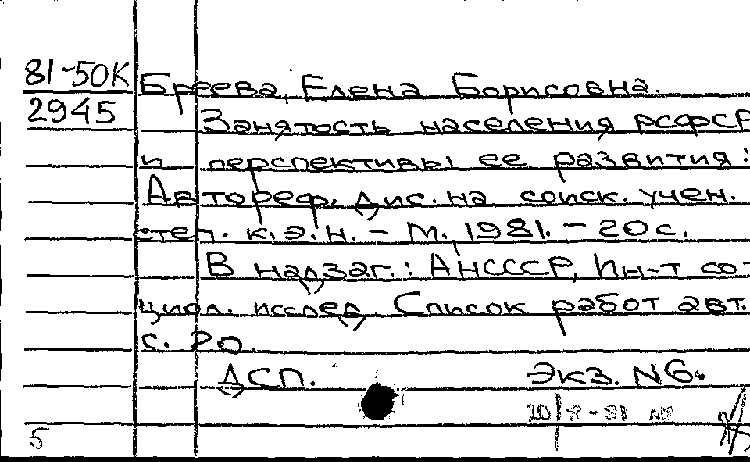 81-50К Бреева, Елена Борисовна.
2945
Занятость населения РСФСР
и перспективы ее развития:
Автореф. дис. на соиск. учен.
степ. к.э.н. - М., 1981. - 20 с.
В надзаг.: АН СССР, Ин-т со-
циол. исслед. Список работ авт.
с. 20.
ДСП. Экз. N6.
5